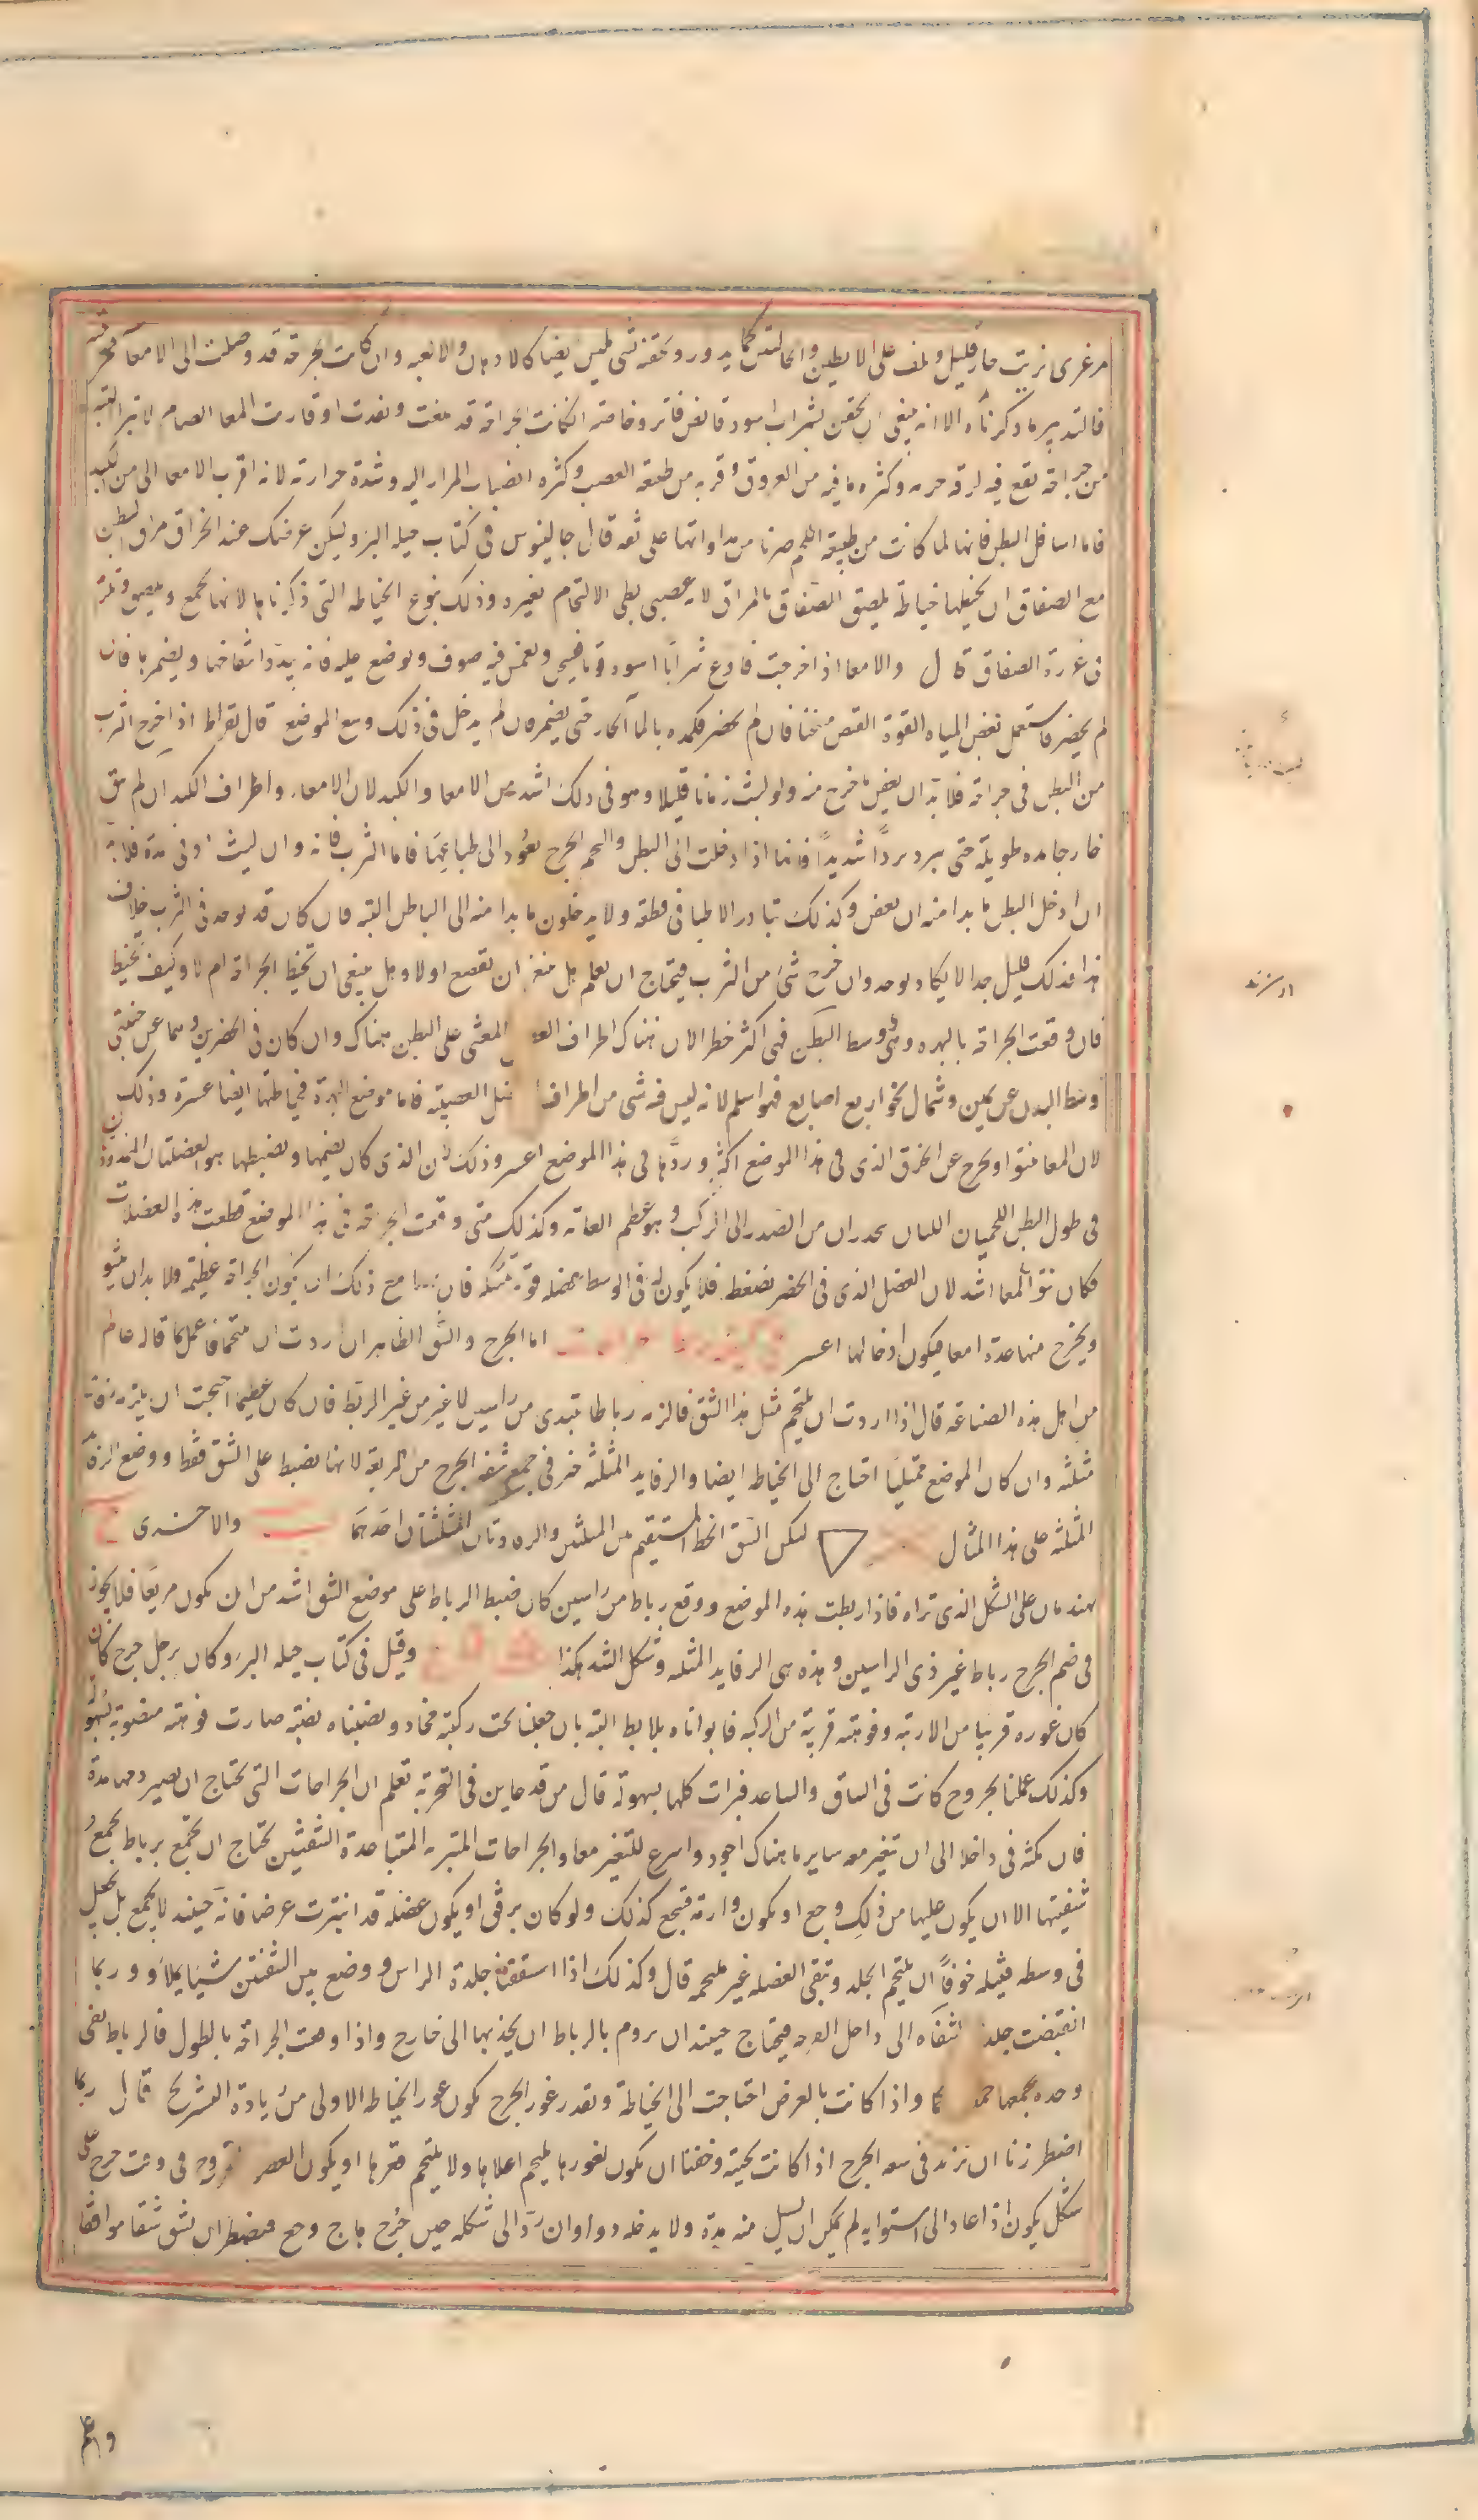 مرغرى بزيت حار قليل ويلف على الابطين والحالبين كما يدور ويحقنه بشى مليس ايضا كالادهان والالعبه وان كانت الجراحة قد وصلت الى الامعا فخرقت
فالتدبير ما ذكرناه الا انه ينبغى ان يحقن بشراب اسود قابض فاتر وخاصة انكانت الجراحة قد بلغت ونفذت او قاربت المعا الصايم لا تبرا البتة
من جراحة تقع فيه لرقة جرمه وكثره ما فيه من العروق وقربه من طبيعة العصب وكثره انصباب المرار اليه وشدة حرارته لانه اقرب الامعا الى من الكبد
فاما اسافل البطن فانها لما كانت من طبيعة اللحم صرنا من مداواتها على ثقه قال جالينوس فى كتاب حيله البرؤ ليكن غرضك عند انخراق مراق البطن
مع الصفاق ان يخيطها خياطة يلصق الصفاق بالمراق لانه عصبى بطى الالتحام بغيره وذلك بنوع الخياطه التى ذكرناها لانها تجمع ويلصق ويلزق
فى غرزة الصفاق قال والامعا اذا خرجت فادع شرابا اسود قويا فيسخن ويغمس فيه صوف ويوضع عليه فانه يبدد انتفاخها ويضمرها فان
لم يحضر فاستعمل بعض المياه القوية القبض مسخنا فان لم يحضر فكمده بالماء الحار حتى يضمر فان لم يدخل فى ذلك وسع الموضع قال بقراط اذا خرج الثرب
من البطن فى جراحة فلا بد ان يعفن ما خرج منه ولو لبث زمانا قليلا وهو فى ذلك اشد من الامعا والكبد لان الامعا واطراف الكبد ان لم تبق
خارجا مده طويلة حتى يبرد بردا شديدا فانها اذا دخلت الى البطن والتحم الجرح يعود الى طباعها فاما الثرب فانه وان لبث ادنى مدة فلا بد
ان ادخل البطن ما بدا منه ان يعفن وكذلك تبادر الاطبا فى قطعه ولا يدخلون ما بدا منه الى الباطن البته فان كان قد يوجد فى الثرب خلاف
هذا فذلك قليل جدا لا يكاد يوجد وان خرج شئ من الثرب فيحتاج ان يعلم هل ينبغى ان يقطع اولا وهل ينبغى ان تخيط الجراحة ام لا وكيف تخيط
فان وقعت الجراحة بالبهره وهى وسط البطن فهى اكثر خطرا لان هناك اطراف العضل المغشى على البطن هناك وان كان فى الخصرين وهما عن جنبتى
وسط البدن عن يمين وشمال نحو اربع اصابع فهو اسلم لانه ليس فيه شى من اطراف العضل العصبيه فاما موضع البهرة فخياطتها ايضا عسرة وذلك
لان المعا تنتوا وتخرج عن الخرق الذى فى هذا الموضع اكثر وردها فى هذا الموضع اعسر وذلك لان الذى كان يضمها ويضبطها هو العضلتان
فى طول البطن اللحميان اللتان تحدران من الصدر الى الركب وهو عظم العانه وكذلك متى وقعت الجراحة فى هذا الموضع قطعت هذه العضلات
فكان نتؤ المعا اشد لان العضل الذى فى الخصر يضغط فلا يكون له فى الوسط عضله قوية تمسكه فان مع ذلك ان يكون الجراحة عظيمة ولابد ان ينتو
ويخرج منها عدة امعا فيكون ادخالها اعسر اما الجرح والشق الظاهر ان اردت ان يلتحما فاعمل كما قاله عالم
من اهل هذه الصناعة قال اذا اردت ان يلتحم مثل هذا الشق فالزمه رباطا يبتدى من راسين لا غير من غير الربط فان كان عظيما احتجت ان يلزمه رفايد
مثلثه وان كان الموضع ممتليا احتاج الى الخياط ايضا والرفايد المثلثه خير فى جمع شفه الجرح من المربعة لانها تضبط على الشق فقط ووضع الرفايد
المثلثه على هذا المثال ليكن الشق الخط المستقيم من المثلثين والرفادتان المثلثتان احدهما والاخرى
يهندمان على الشكل الذى تراه فاذا ربطت هذه الموضع ووقع رباط من راسين كان ضبط الرباط على موضع الشق اشد من ان يكون مربعا فلا يجوز
فى ضم الجرح رباط غير ذى الراسين وهذه هى الرفايد المثلثه وشكل الشد هكذا وقيل فى كتاب حيله البرؤ كان برجل جرح كان
كان غوره قريبا من الاربية وفوهته قريبة من الركبه فابراناه بلا بط البته بان جعلنا تحت ركبته مخاد ونصبناه نصبة صارت فوهته منصوبة بسهولة
وكذلك عملنا بجروح كانت فى الساق والساعد فبرات كلها بسهولة قال من قد عاين فى التجربة تعلم ان الجراحات التى تحتاج ان يصير دمها مدة
فان مكثه فى داخلا الى ان تتغير معه ساير ما هناك اجود واسرع للتغير معا والجراحات المتبريه المتباعدة الشفتين تحتاج ان تجمع برباط يجمع
شفتيها الا ان يكون عليها من ذلك وجع او يكون وارمة فتجمع كذلك ولو كان برفق او يكون عضله قد انبترت عرضا فانه حينئذ لا يجمع بل يجعل
فى وسطه فتيله خوفا ان يلتحم الجلد وتبقى العضله غير ملتحمه قال وكذلك اذا استققنا جلدة الراس وضع بين الشفتين شيئا يملاه وربما
انقبضت جلد شفاه الى داخل الجرح فيحتاج حينئذ ان يروم بالرباط ان يجذبها الى خارج واذا وقعت الجراحة بالطول فالرباط يفى
وحده بجمعها واذا كانت بالعرض احتاجت الى الخياطة وتقدر غور الجرح يكون غور الخياطه الاولى من زيادة التشريح قال ربما
اضطررنا ان نزيد فى سعه الجرح اذا كانت نخسة وخفنا ان يكون لغورها يلتحم اعلاها ولا يلتحم قعرها او يكون العضو فى وقت جرح على
شكل يكون اذا عاد الى استوايه لم يمكن ان يسيل منه مدة ولا يدخله دوا وان رد الى شكله حين جرح هاج وجع فيضطر ان يشق شقا موافقا